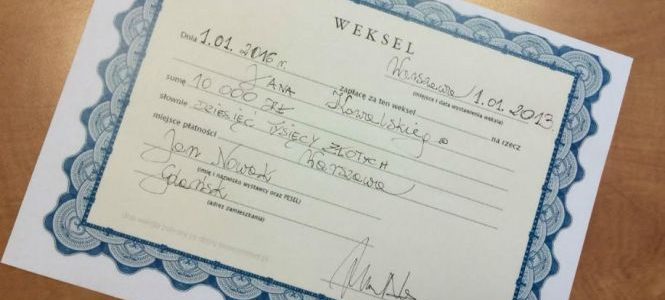 WEKSEL
Warszawa 1.01.2013
(miejsce i data wystawienia weksla)
Dnia 1.01.2016 r. zapłacę za ten weksel na rzecz
JANA Kowalskiego
sumę 10 000 zł
słownie DZIESIĘĆ TYSIĘCY ZŁOTYCH
miejsce płatności Warszawa
Jan Nowak
(imię i nazwisko wystawcy oraz PESEL)
Gdańsk
(adres zamieszkania)